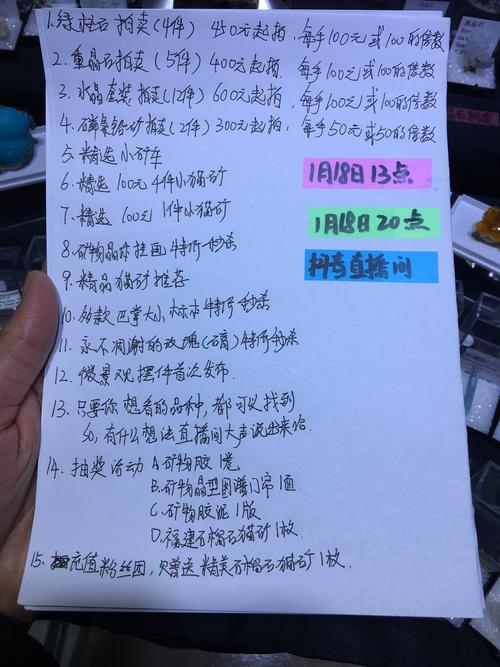 1.绿柱石拍卖(4件) 450元起拍,每手100元或100的倍数
2.重晶石拍卖(5件) 400元起拍,每手100元或100的倍数
3.水晶套装拍卖(12件) 600元起拍,每手100元或100的倍数
4.磷氯铅矿拍卖(2件) 300元起拍,每手50元或50的倍数
5.精选小矿车
6.精选100元4件小猫矿
7.精选 100元1件小猫矿
8.矿物晶体挂画特价秒杀
9.精品猫矿推荐
10.多款巴掌大小标本特价秒杀
11.永不凋谢的玫瑰(石膏)特价秒杀
12.微景观摆件首次发布.
13.只要你想看的品种,都可以找到
so,有什么想法直播间大声说出来哈.
14.抽奖活动 A.矿物胶1卷
B.矿物晶型图谱门帘1道
C.矿物胶泥1版
D.福建石榴石猫矿1枚.
15.充值粉丝团,赠送精美石榴石猫矿1枚.
1月18日13点
1月18日20点
抖音直播间